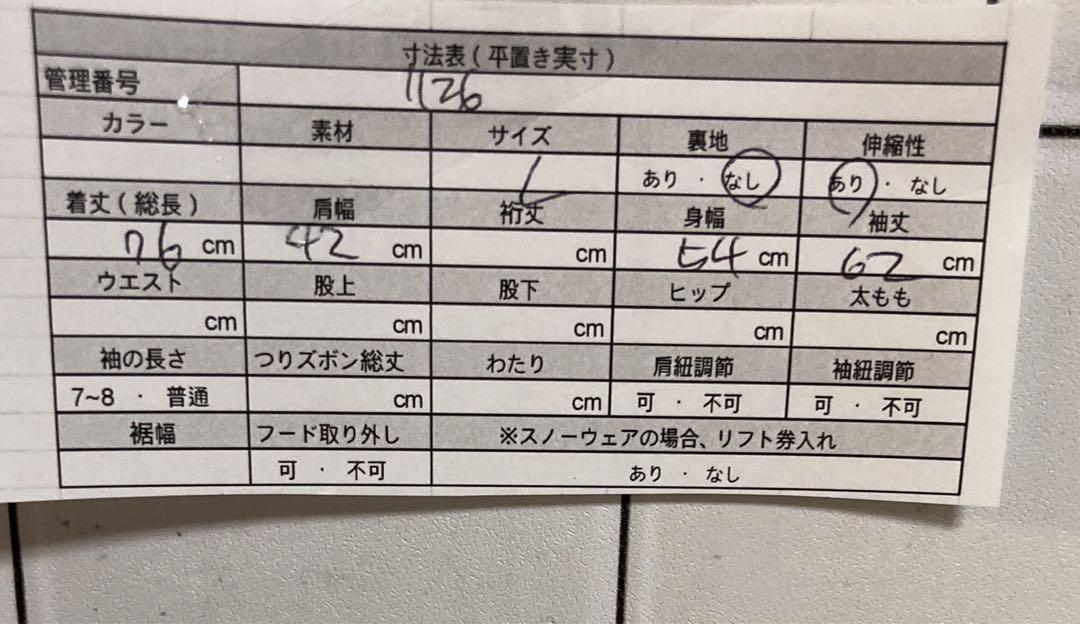 寸法表(平置き実寸)
管理番号 1126
カラー 素材 サイズ 裏地 伸縮性
L あり ・ なし あり ・ なし
着丈(総長) 肩幅 裄丈 身幅 袖丈
76 cm 42 cm cm 54 cm 62 cm
ウエスト 股上 股下 ヒップ 太もも
cm cm cm cm cm
袖の長さ つりズボン総丈 わたり 肩紐調節 袖紐調節
7~8 ・ 普通 cm cm 可 ・ 不可 可 ・ 不可
裾幅 フード取り外し ※スノーウェアの場合、リフト券入れ
可 ・ 不可 あり ・ なし